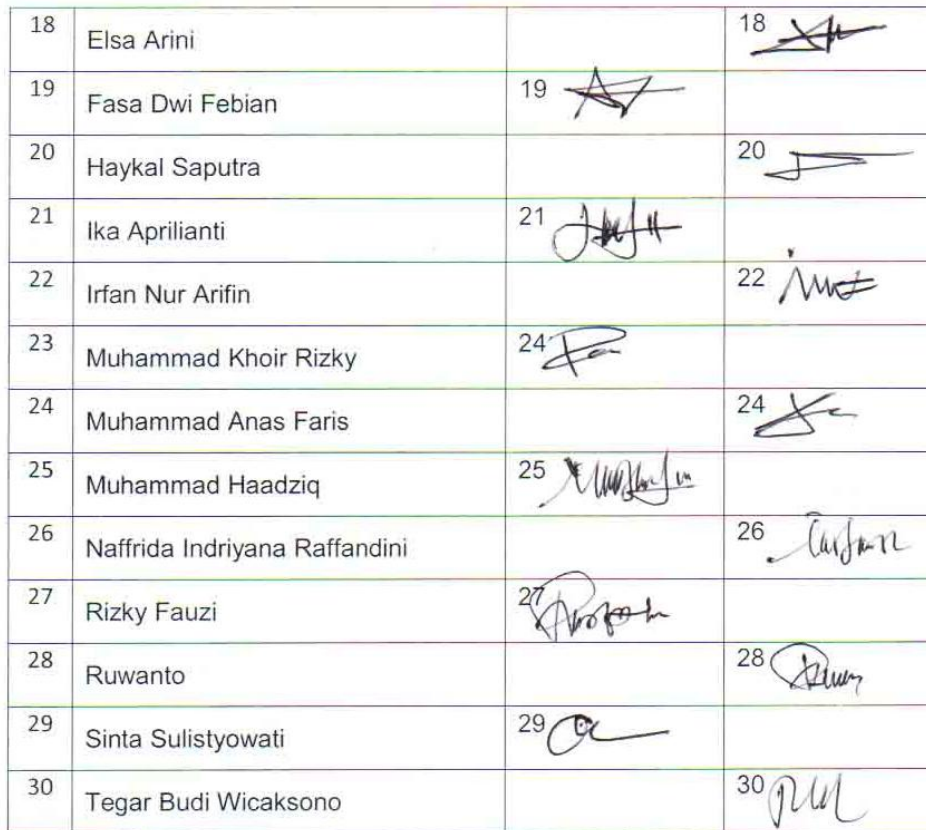 18 Elsa Arini 18
19 Fasa Dwi Febian 19
20 Haykal Saputra 20
21 Ika Aprilianti 21
22 Irfan Nur Arifin 22
23 Muhammad Khoir Rizky 24
24 Muhammad Anas Faris 24
25 Muhammad Haadziq 25
26 Naffrida Indriyana Raffandini 26
27 Rizky Fauzi 27
28 Ruwanto 28
29 Sinta Sulistyowati 29
30 Tegar Budi Wicaksono 30